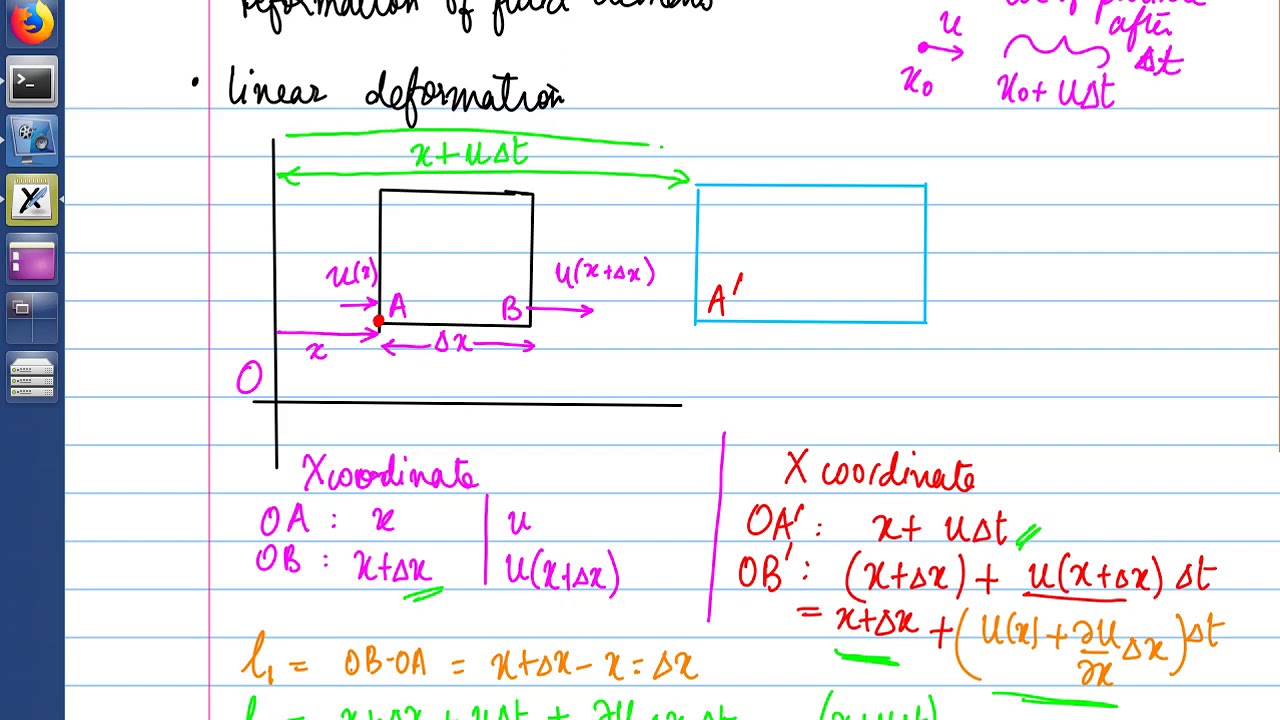 Deformation of fluid elements
after
u
Δt
x₀
x₀ + uΔt
• linear deformation
x + uΔt
u(x)
u(x+Δx)
A
B
A'
x
Δx
O
X coordinate
OA : x | u
OB : x+Δx | u(x+Δx)
X coordinate
OA' : x + uΔt
OB' : (x+Δx) + u(x+Δx) Δt
= x+Δx + (u(x) + ∂u/∂x Δx)Δt
l₁ = OB-OA = x+Δx - x = Δx